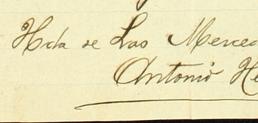 Hda de Las Merced
Antonio He